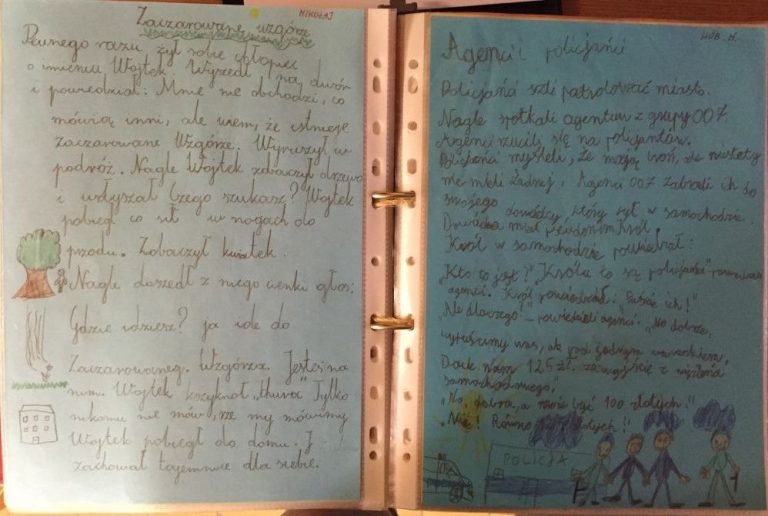 MIKOŁAJ
Zaczarowane wzgórze
Pewnego razu żył sobie chłopiec
o imieniu Wojtek. Wyszedł na dwór
i powiedział: Mnie nie obchodzi, co
mówią inni, ale wiem, że istnieje
Zaczarowane Wzgórze. Wyruszył w
podróż. Nagle Wojtek zobaczył drzewo
i usłyszał Czego szukasz? Wojtek
pobiegł co sił w nogach do
przodu. Zobaczył kwiatek.
Nagle doszedł z niego cienki głos:
Gdzie idziesz? ja ide do
Zaczarowaneg. Wzgórza. Jesteś na
nim. Wojtek krzyknął "Hura" Tylko
nikomu nie mów, że my mówimy
Wojtek pobiegł do domu. I
zachował tajemnice dla siebie.
KUB. N.
Agenci i policjanci
Policjanci szli patrolować miasto.
Nagle spotkali agentów z grupy 007.
Agenci rzucili się na policjantów.
Policjanci myśleli, że mają broń, ale niestety
nie mieli żadnej. Agenci 007 zabrali ich do
swojego dowódcy, który był w samochodzie.
Dowódca miał pseudonim Król.
Król w samochodzie powiedział:
„Kto to jest?" „Królu to są policjanci"- powiedzieli
agenci. Król powiedział: Puścić ich!"
„Nie dlaczego" - powiedzieli agenci. „No dobrze,
wypuścimy was, ale pod jednym warunkiem,
Dacie nam 125 zł. za wyjście z więzienia
samochodowego."
„No dobra, a może być 100 złotych?"
„Nie! Równo złotych"!
POLICJA